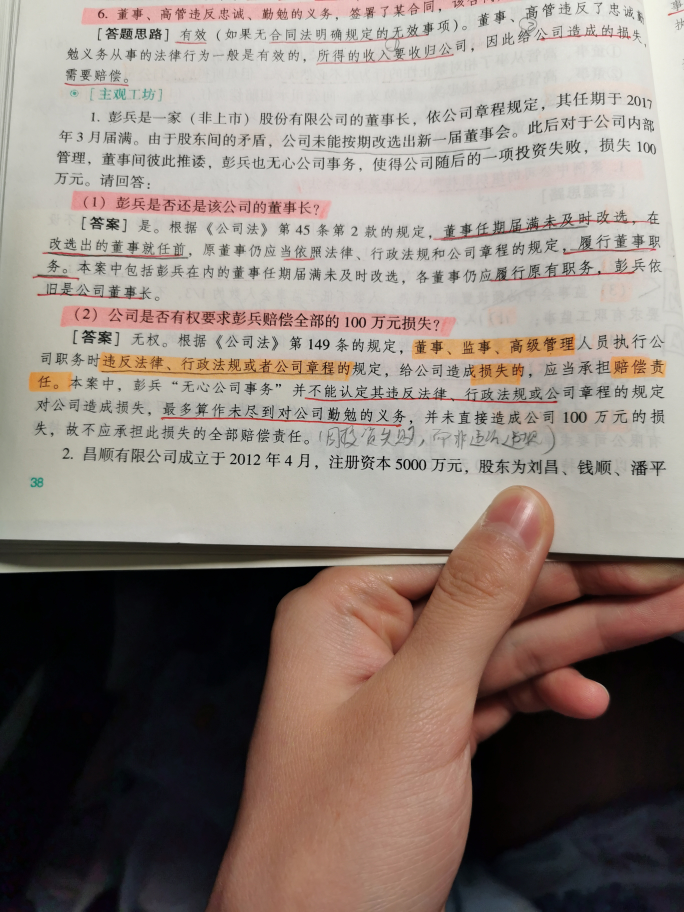 6. 董事、高管违反忠诚、勤勉的义务，签署了某合同，该合
[答题思路] 有效（如果无合同法明确规定的无效事项）。董事、高管违反了忠诚勤
勉义务从事的法律行为一般是有效的，所得的收入要收归公司，因此给公司造成的损失，
需要赔偿。
[主观工坊]
1. 彭兵是一家（非上市）股份有限公司的董事长，依公司章程规定，其任期于 2017
年 3 月届满。由于股东间的矛盾，公司未能按期改选出新一届董事会。此后对于公司内部
管理，董事间彼此推诿，彭兵也无心公司事务，使得公司随后的一项投资失败，损失 100
万元。请回答：
（1）彭兵是否还是该公司的董事长？
[答案] 是。根据《公司法》第 45 条第 2 款的规定，董事任期届满未及时改选，在
改选出的董事就任前，原董事仍应当依照法律、行政法规和公司章程的规定，履行董事职
务。本案中包括彭兵在内的董事任期届满未及时改选，各董事仍应履行原有职务，彭兵依
旧是公司董事长。
（2）公司是否有权要求彭兵赔偿全部的 100 万元损失？
[答案] 无权。根据《公司法》第 149 条的规定，董事、监事、高级管理人员执行公
司职务时违反法律、行政法规或者公司章程的规定，给公司造成损失的，应当承担赔偿责
任。本案中，彭兵“无心公司事务”并不能认定其违反法律、行政法规或公司章程的规定
对公司造成损失，最多算作未尽到对公司勤勉的义务，并未直接造成公司 100 万元的损
失，故不应承担此损失的全部赔偿责任。
2. 昌顺有限公司成立于 2012 年 4 月，注册资本 5000 万元，股东为刘昌、钱顺、潘平
38